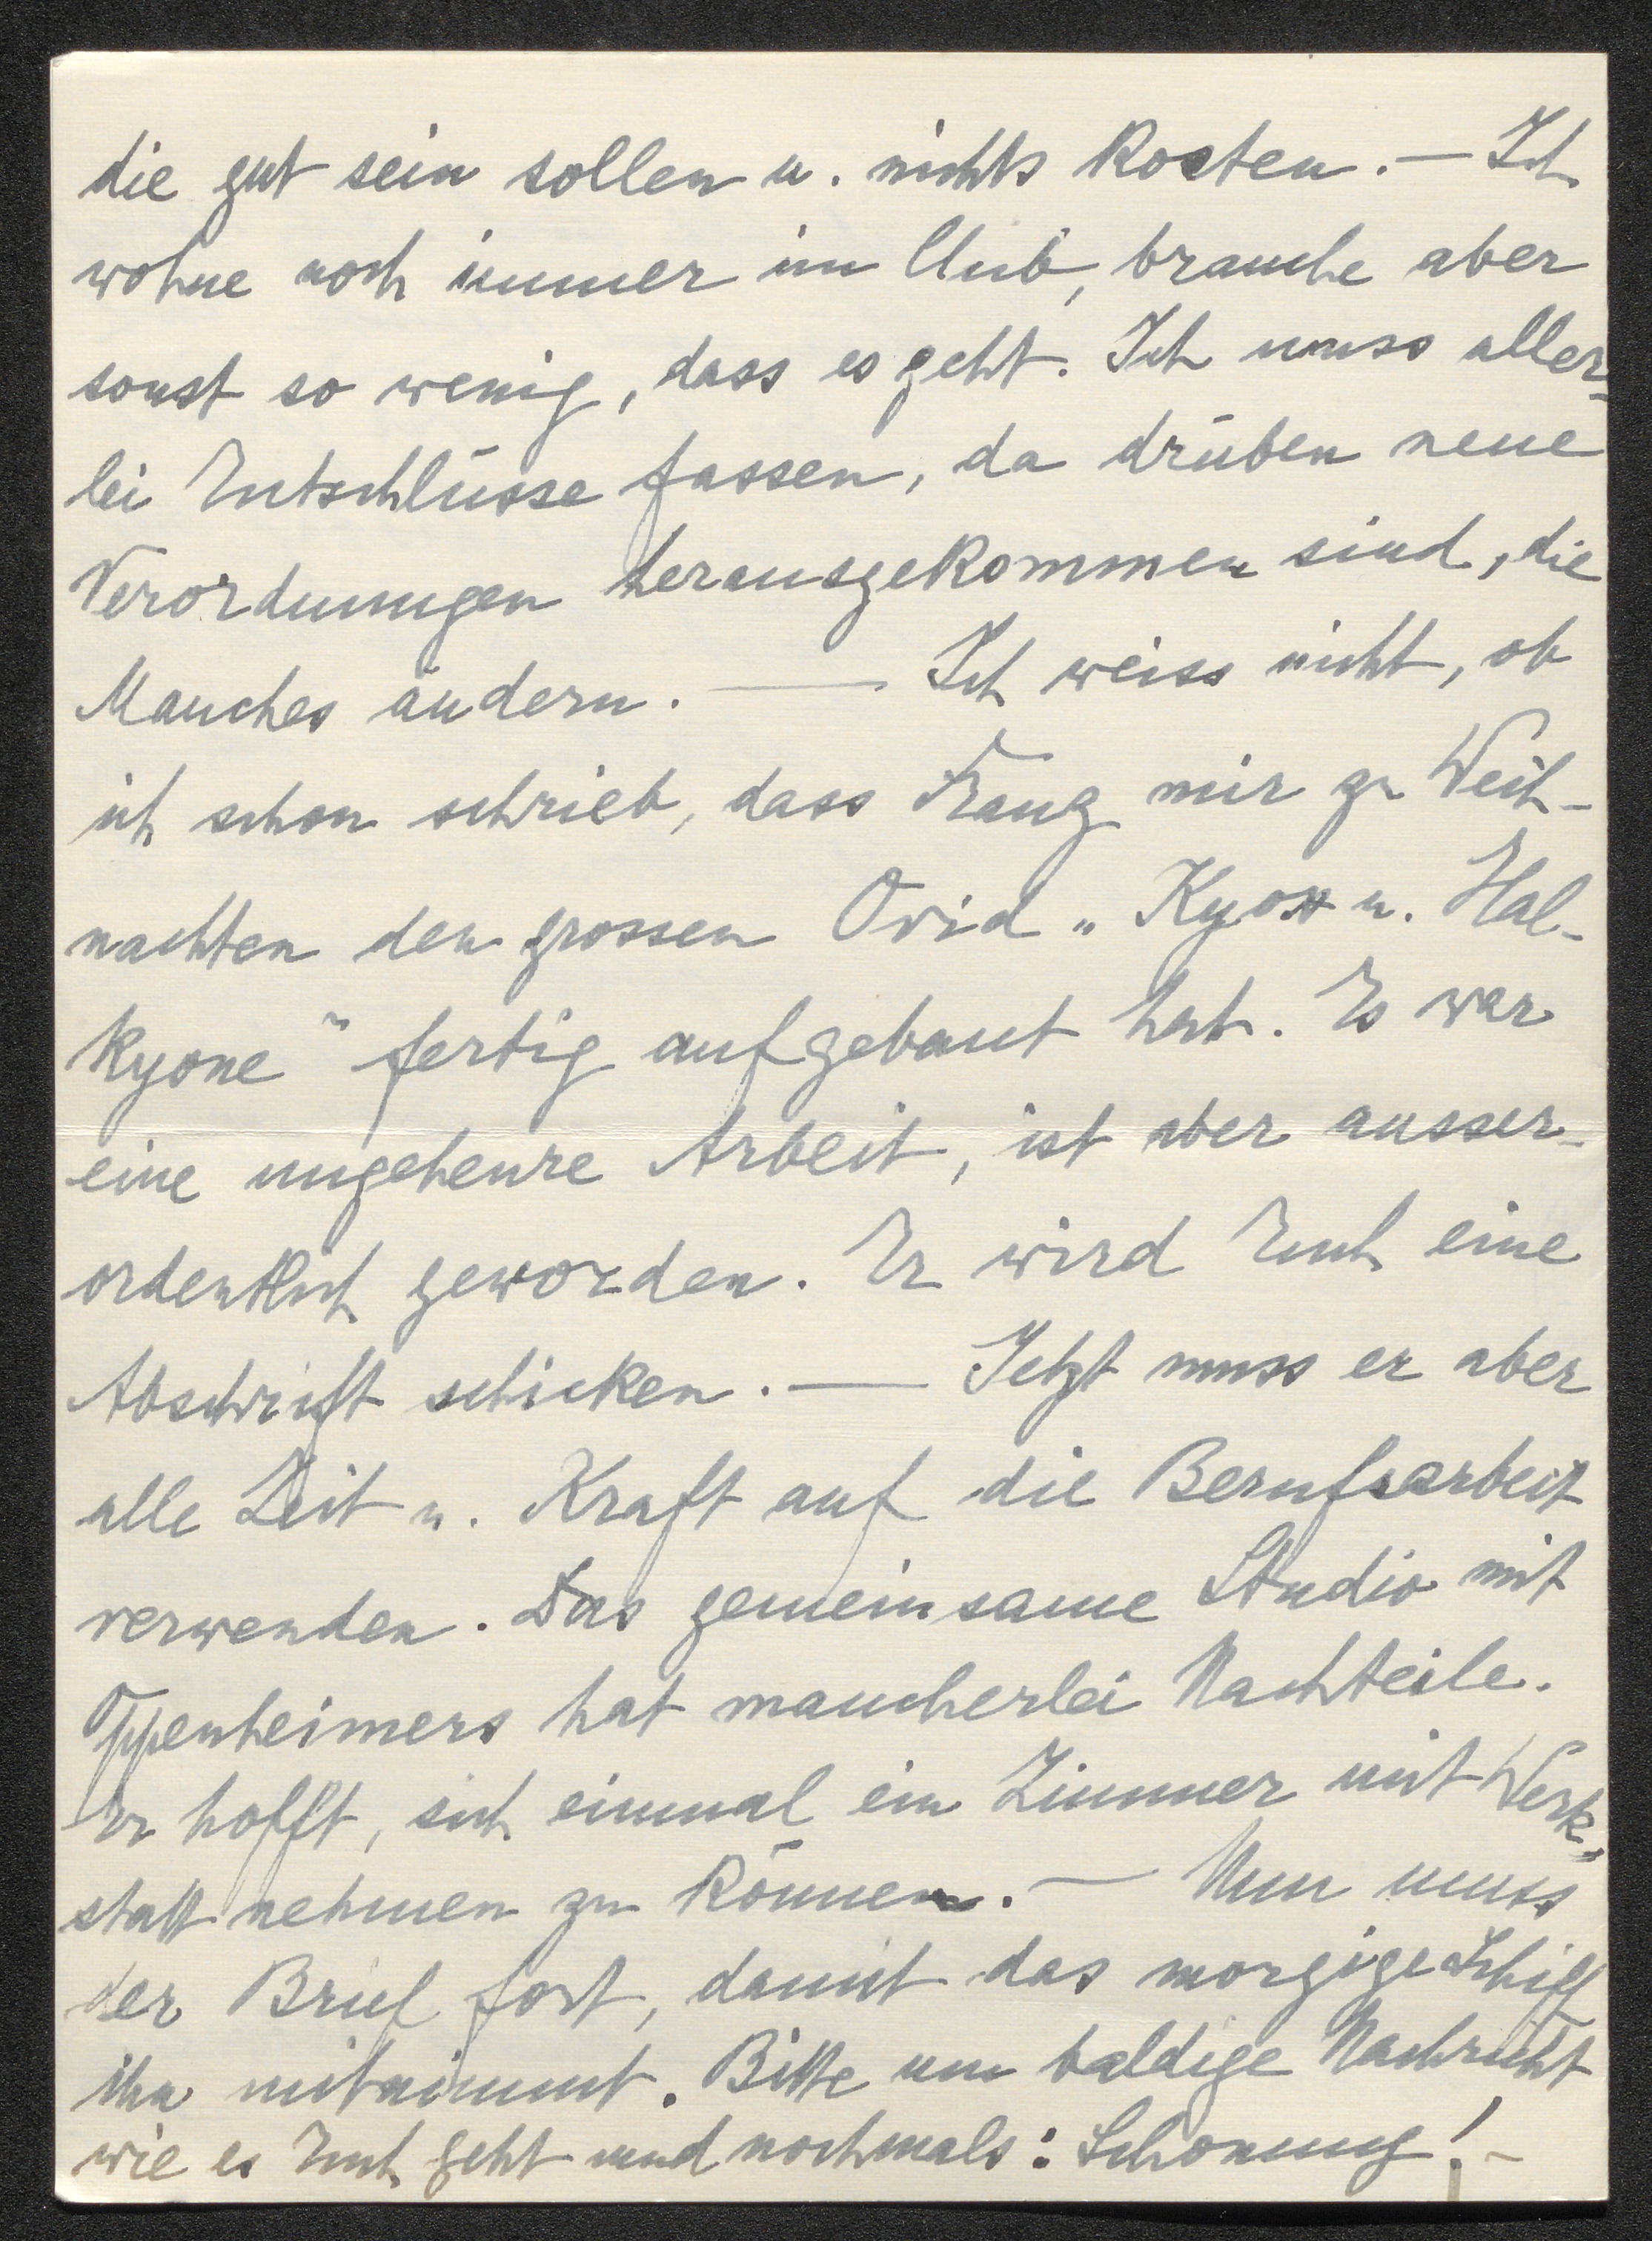 die gut sein sollen u. nichts kosten. — Ich
wohne noch immer im Club, brauche aber
sonst so wenig, dass es geht. Ich muss aller-
lei Entschlüsse fassen, da drüben neue
Verordnungen herausgekommen sind, die
Manches ändern. — Ich weiss nicht, ob
ich schon schrieb, dass Franz mir zu Weih-
nachten den grossen Ovid „Kyox u. Hal-
kyone" fertig aufgebaut hat. Es war
eine ungeheure Arbeit, ist aber ausser-
ordentlich geworden. Er wird Euch eine
Abschrift schicken. — Jetzt muss er aber
alle Zeit u. Kraft auf die Berufsarbeit
verwenden. Das gemeinsame Studio mit
Oppenheimers hat mancherlei Nachteile.
Er hofft, sich einmal ein Zimmer mit Werk-
statt nehmen zu können. — Nun muss
der Brief fort, damit das morgige Schiff
ihn mitnimmt. Bitte um baldige Nachricht
wie es Euch geht und nochmals: Schonung! -